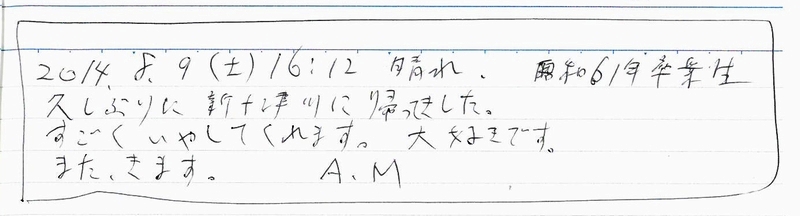 2014. 8. 9 (土) 16:12 晴れ、 昭和61年卒業生
久しぶりに新十津川に帰ってきました。
すごくいやしてくれます。 大好きです。
また、きます。 A.M